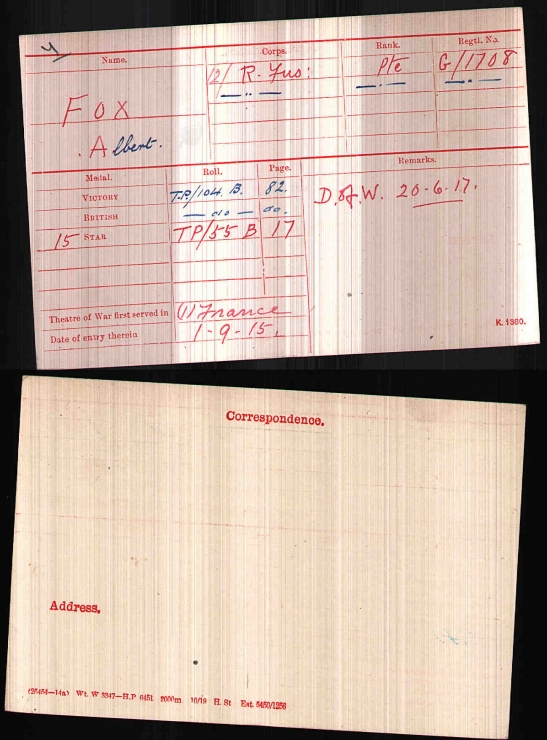 Name. Corps. Rank. Regtl. No.
12/ R. Fus: Pte G/1708
— " — — . — — . —
FOX
Albert.
Medal. Roll. Page. Remarks.
VICTORY T.P./104. B. 82. D. of W. 20-6-17.
BRITISH — do — do.
15 STAR TP/55 B 17
Theatre of War first served in (1) France
Date of entry therein 1-9-15.
K. 1380.
Correspondence.
Address.
Wt. W 5347—H.P 6451 2000m. 10/19 H. St